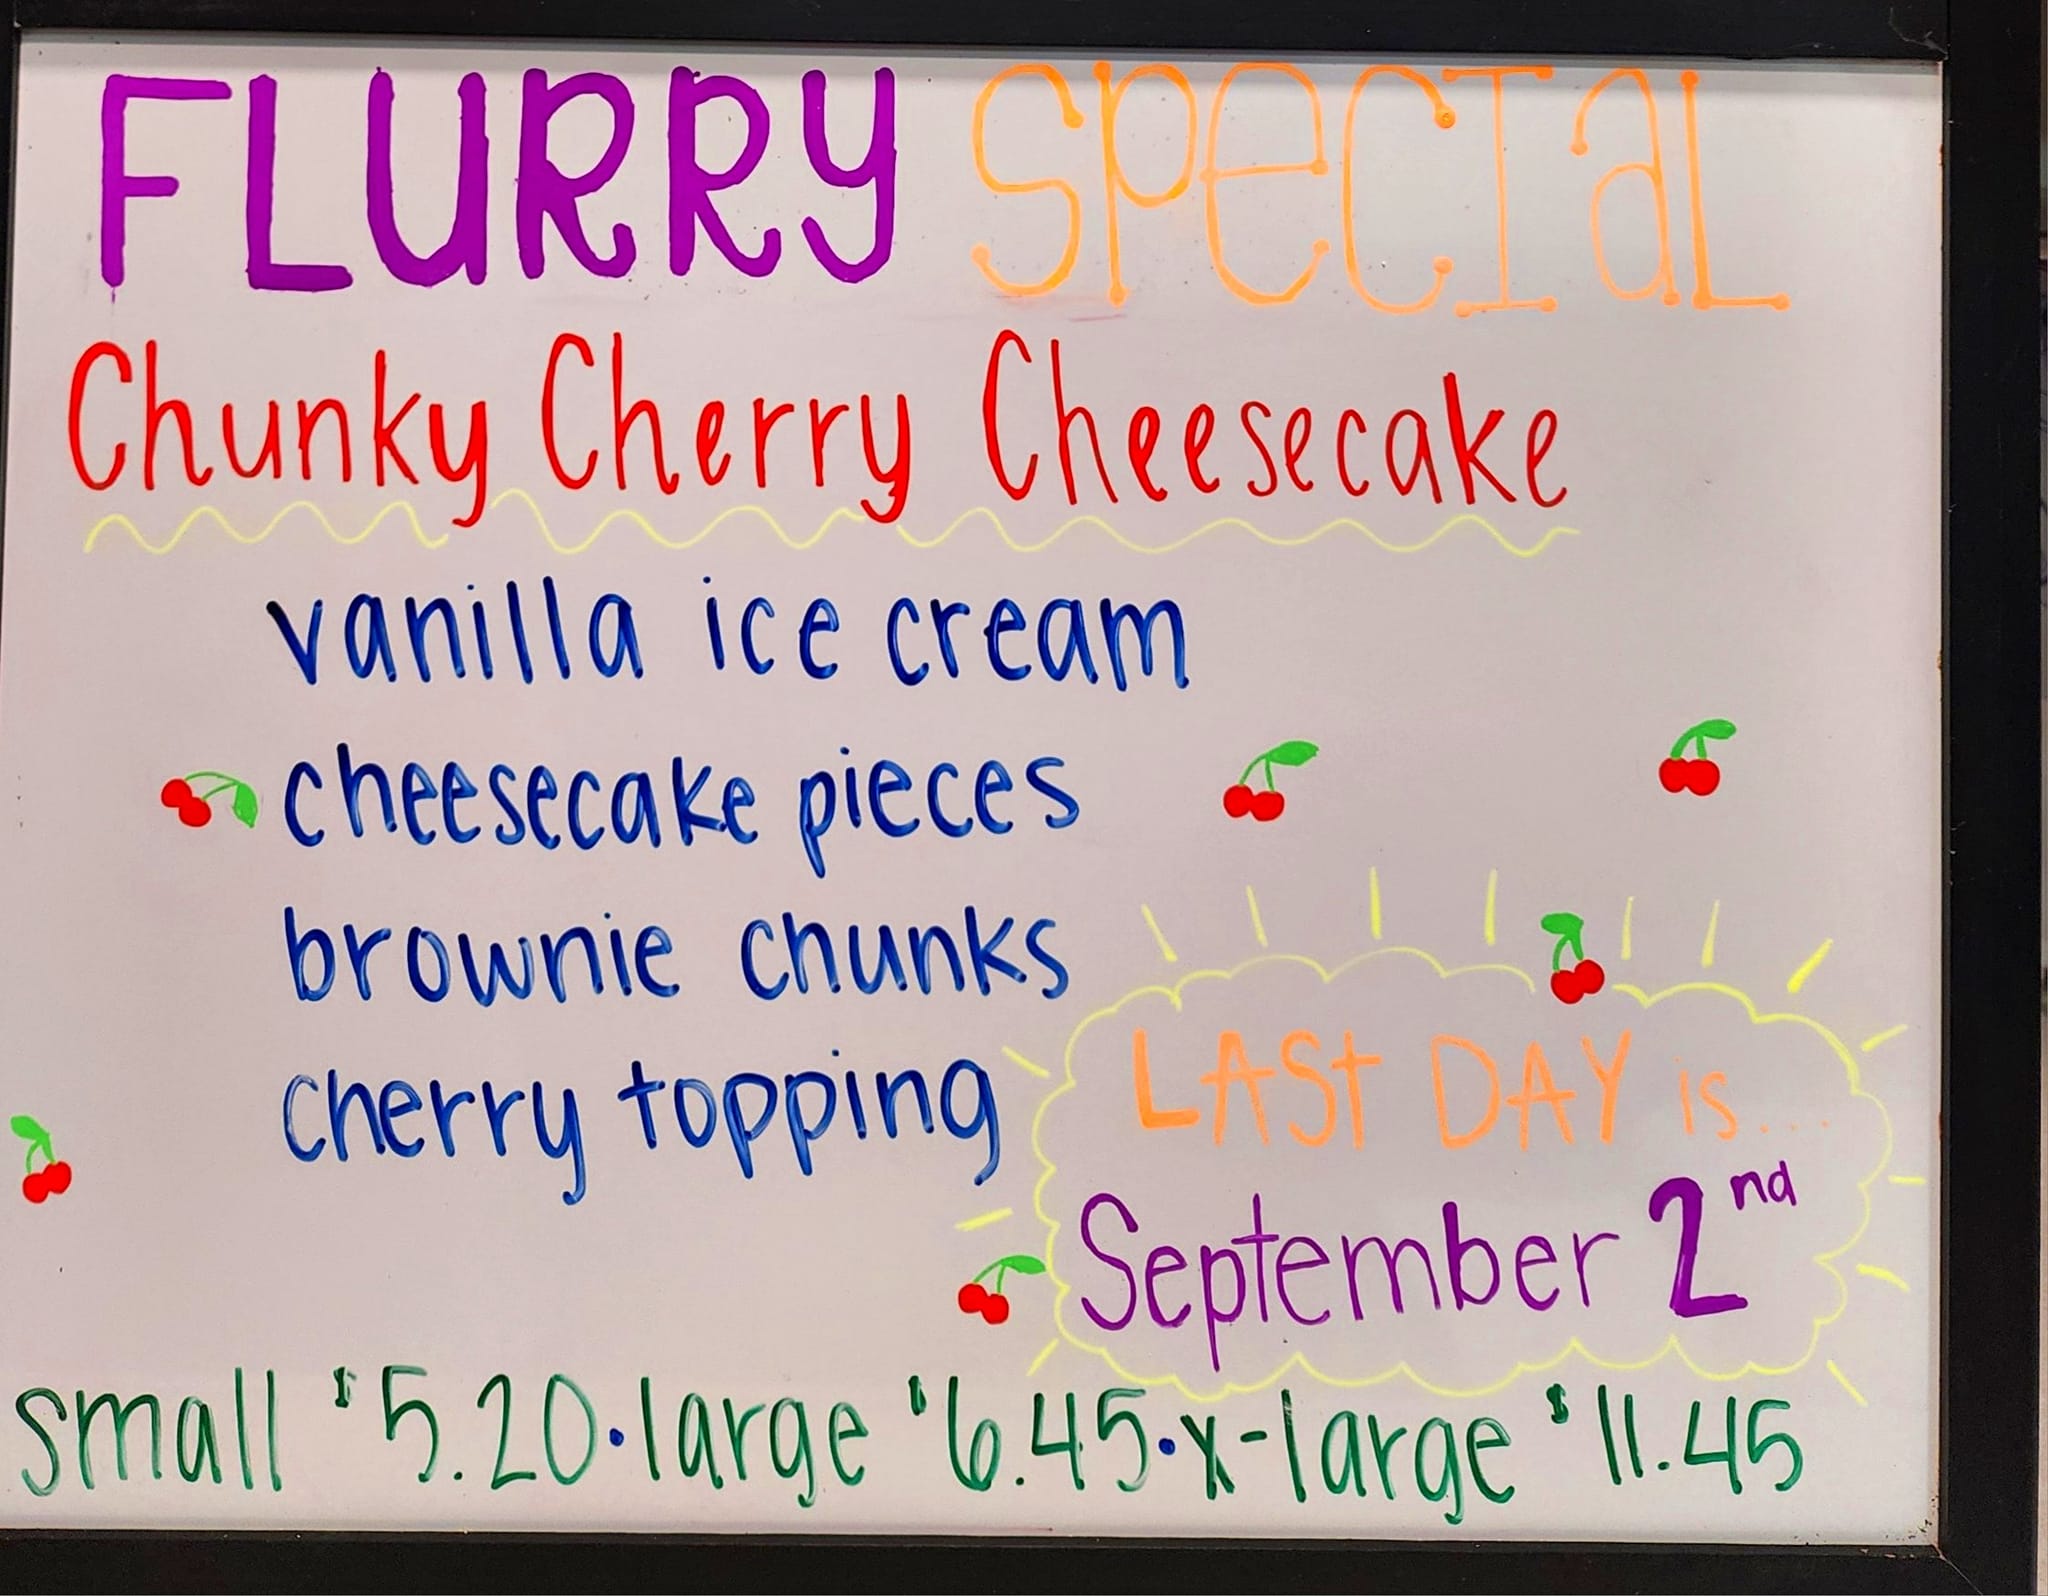 FLURRY SPeCIaL
Chunky Cherry Cheesecake
vanilla ice cream
cheesecake pieces
brownie chunks
cherry topping
LASt DAY is...
September 2nd
small $5.20·large $6.45·x-large $11.45